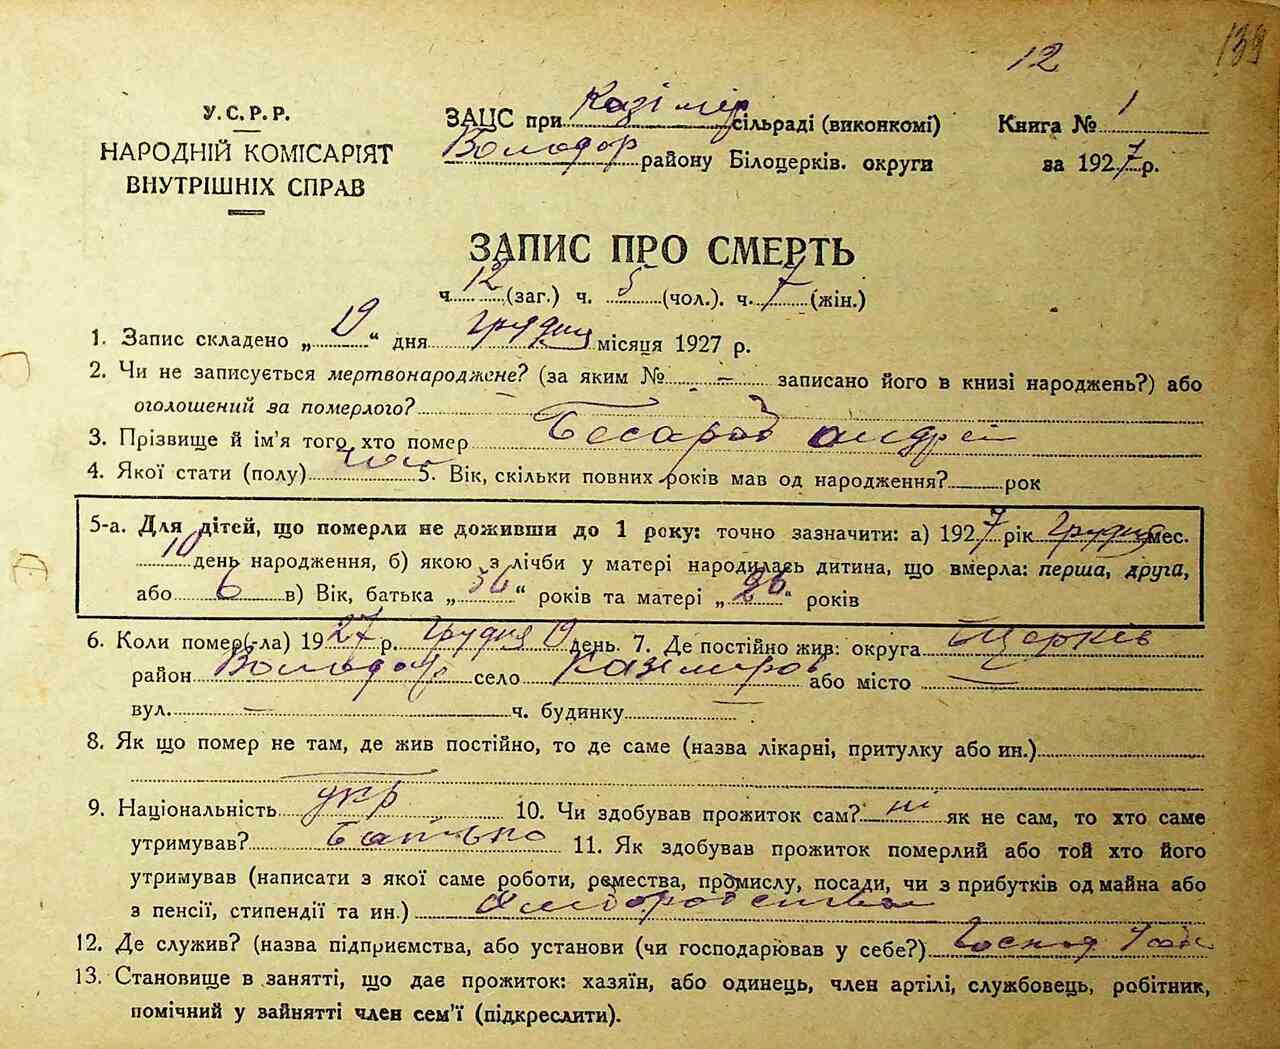 139
12
У.С.Р.Р.
НАРОДНІЙ КОМІСАРІЯТ
ВНУТРІШНІХ СПРАВ
ЗАЦС при Казімір сільраді (виконкомі)
Володор району Білоцерків. округи
Книга № 1
за 1927 р.
ЗАПИС ПРО СМЕРТЬ
ч. 12 (заг.) ч. 5 (чол.). ч. 7 (жін.)
1. Запис складено „ 19 “ дня грудня місяця 1927 р.
2. Чи не записується мертвонароджене? (за яким № – записано його в книзі народжень?) або
оголошений за померлого?
3. Прізвище й ім'я того хто помер Андрей
4. Якої стати (полу) чол 5. Вік, скільки повних років мав од народження? рок
5-а. Для дітей, що померли не доживши до 1 року: точно зазначити: а) 1927 рік грудня мес.
10 день народження, б) якою з лічби у матері народилась дитина, що вмерла: перша, друга,
або 6 в) Вік, батька „ 36 “ років та матері „ 26 “ років
6. Коли помер(-ла) 1927 р. грудня 19 день. 7. Де постійно жив: округа Церків
район Володор село Казіміров або місто —
вул. — ч. будинку —
8. Як що помер не там, де жив постійно, то де саме (назва лікарні, притулку або ин.)
9. Національність укр 10. Чи здобував прожиток сам? ні як не сам, то хто саме
утримував? Батько 11. Як здобував прожиток померлий або той хто його
утримував (написати з якої саме роботи, ремества, промислу, посади, чи з прибутків од майна або
з пенсії, стипендії та ин.)
12. Де служив? (назва підприємства, або установи (чи господарював у себе?)
13. Становище в занятті, що дає прожиток: хазяїн, або одинець, член артілі, службовець, робітник,
помічний у зайнятті член сем'ї (підкреслити).